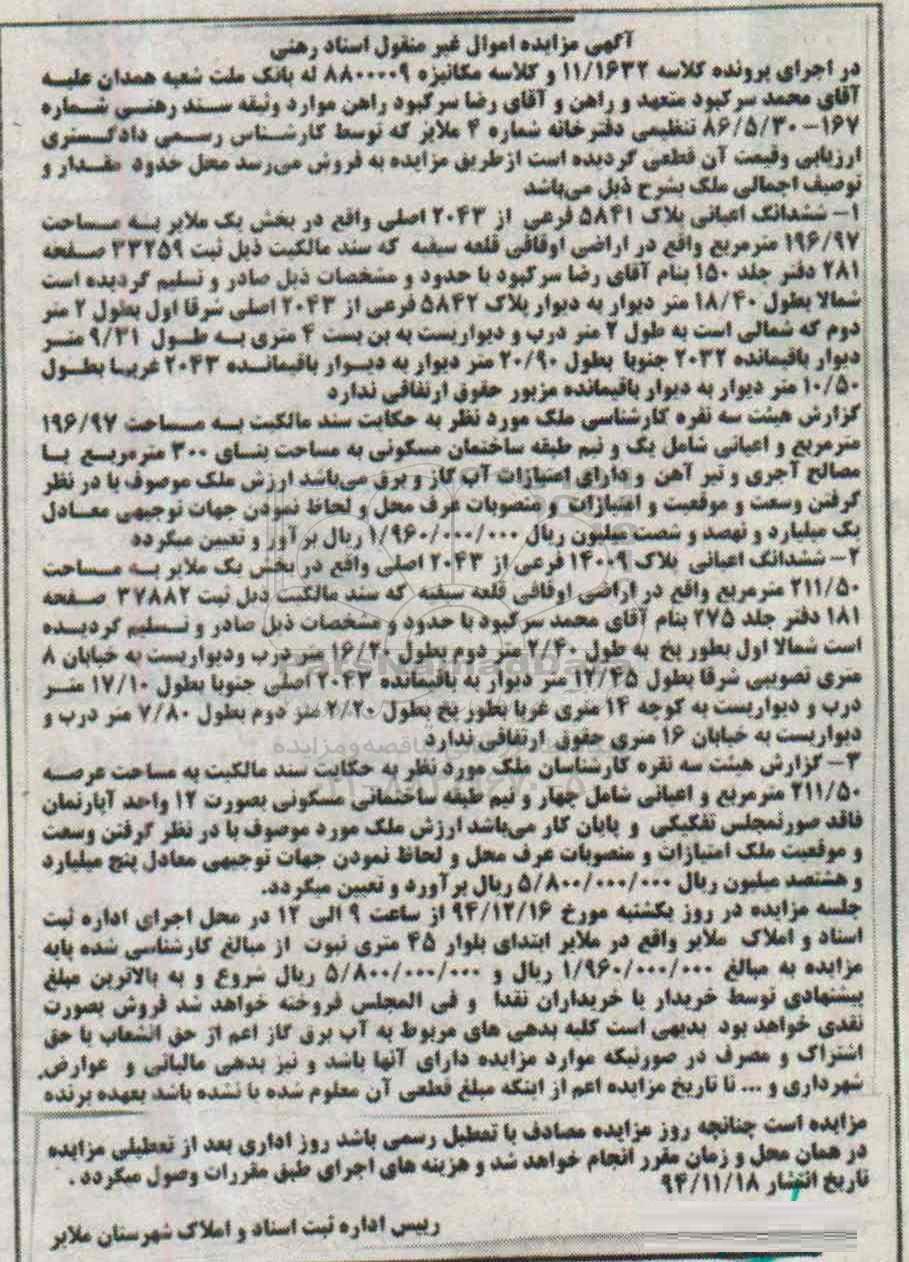 آگهی مزایده اموال غیر منقول اسناد رهنی
در اجرای پرونده کلاسه ۱۱/۱۶۳۲ و کلاسه مکانیزه ۸۸۰۰۰۰۹ له بانک ملت شعبه همدان علیه
آقای محمد سرکبود متعهد و راهن و آقای رضا سرکبود راهن موارد وثیقه سند رهنی شماره
۱۶۷-۸۶/۵/۳۰ تنظیمی دفترخانه شماره ۴ ملایر که توسط کارشناس رسمی دادگستری
ارزیابی وقیمت آن قطعی گردیده است ازطریق مزایده به فروش می‌رسد محل حدود مقدار و
توصیف اجمالی ملک بشرح ذیل می‌باشد
۱- ششدانگ اعیانی پلاک ۵۸۴۱ فرعی از ۲۰۴۳ اصلی واقع در بخش یک ملایر به مساحت
۱۹۶/۹۷ مترمربع واقع در اراضی اوقافی قلعه سیفیه که سند مالکیت ذیل ثبت ۳۳۲۵۹ صفحه
۲۸۱ دفتر جلد ۱۵۰ بنام آقای رضا سرکبود با حدود و مشخصات ذیل صادر و تسلیم گردیده است
شمالا بطول ۱۸/۴۰ متر دیوار به دیوار پلاک ۵۸۴۲ فرعی از ۲۰۴۳ اصلی شرقا اول بطول ۲ متر
دوم که شمالی است به طول ۲ متر درب و دیواریست به بن بست ۴ متری به طول ۹/۳۱ متر
دیوار باقیمانده ۲۰۳۲ جنوبا بطول ۲۰/۹۰ متر دیوار به دیوار باقیمانده ۲۰۴۳ غربیا بطول
۱۰/۵۰ متر دیوار به دیوار باقیمانده مزبور حقوق ارتفاقی ندارد
گزارش هیئت سه نفره کارشناسی ملک مورد نظر به حکایت سند مالکیت به مساحت ۱۹۶/۹۷
مترمربع و اعیانی شامل یک و نیم طبقه ساختمان مسکونی به مساحت بنای ۳۰۰ مترمربع با
مصالح آجری و تیر آهن و دارای امتیازات آب گاز و برق می‌باشد ارزش ملک موصوف با در نظر
گرفتن وسعت و موقعیت و امتیازات و منصوبات عرف محل و لحاظ نمودن جهات توجیهی معادل
یک میلیارد و نهصد و شصت میلیون ریال ۱/۹۶۰/۰۰۰/۰۰۰ ریال بر آور و تعیین میگردد
۲- ششدانگ اعیانی پلاک ۱۴۰۰۹ فرعی از ۲۰۴۳ اصلی واقع در بخش یک ملایر به مساحت
۲۱۱/۵۰ مترمربع واقع در اراضی اوقافی قلعه سیفیه که سند مالکیت ذیل ثبت ۳۷۸۸۲ صفحه
۱۸۱ دفتر جلد ۲۷۵ بنام آقای محمد سرکبود با حدود و مشخصات ذیل صادر و تسلیم گردیده
است شمالا اول بطور پخ به طول ۲/۴۰ متر دوم بطول ۱۶/۲۰ متر درب ودیواریست به خیابان ۸
متری تصویبی شرقا بطول ۱۲/۴۵ متر دیوار به باقیمانده ۲۰۴۳ اصلی جنوبا بطول ۱۷/۱۰ متر
درب و دیواریست به کوچه ۱۴ متری غربا بطور پخ بطول ۲/۲۰ متر دوم بطول ۷/۸۰ متر درب و
دیواریست به خیابان ۱۶ متری حقوق ارتفاقی ندارد
۳- گزارش هیئت سه نفره کارشناسان ملک مورد نظر به حکایت سند مالکیت به مساحت عرصه
۲۱۱/۵۰ مترمربع و اعیانی شامل چهار و نیم طبقه ساختمانی مسکونی بصورت ۱۲ واحد آپارتمان
فاقد صورتمجلس تفکیکی و پایان کار می‌باشد ارزش ملک مورد موصوف با در نظر گرفتن وسعت
و موقعیت ملک امتیازات و منصوبات عرف محل و لحاظ نمودن جهات توجیهی معادل پنج میلیارد
و هشتصد میلیون ریال ۵/۸۰۰/۰۰۰/۰۰۰ ریال بر آورد و تعیین میگردد.
جلسه مزایده در روز یکشنبه مورخ ۹۴/۱۲/۱۶ از ساعت ۹ الی ۱۲ در محل اجرای اداره ثبت
اسناد و املاک ملایر واقع در ملایر ابتدای بلوار ۴۵ متری نبوت از مبالغ کارشناسی شده پایه
مزایده به مبالغ ۱/۹۶۰/۰۰۰/۰۰۰ ریال و ۵/۸۰۰/۰۰۰/۰۰۰ ریال شروع و به بالاترین مبلغ
پیشنهادی توسط خریدار یا خریداران نقدا و فی المجلس فروخته خواهد شد فروش بصورت
نقدی خواهد بود بدیهی است کلیه بدهی های مربوط به آب برق گاز اعم از حق انشعاب یا حق
اشتراک و مصرف در صورتیکه موارد مزایده دارای آنها باشد و نیز بدهی مالیاتی و عوارض
شهرداری و ... تا تاریخ مزایده اعم از اینکه مبلغ قطعی آن معلوم شده یا نشده باشد بعهده برنده
مزایده است چنانچه روز مزایده مصادف با تعطیل رسمی باشد روز اداری بعد از تعطیلی مزایده
در همان محل و زمان مقرر انجام خواهد شد و هزینه های اجرای طبق مقررات وصول میگردد .
تاریخ انتشار ۹۴/۱۱/۱۸
رییس اداره ثبت اسناد و املاک شهرستان ملایر